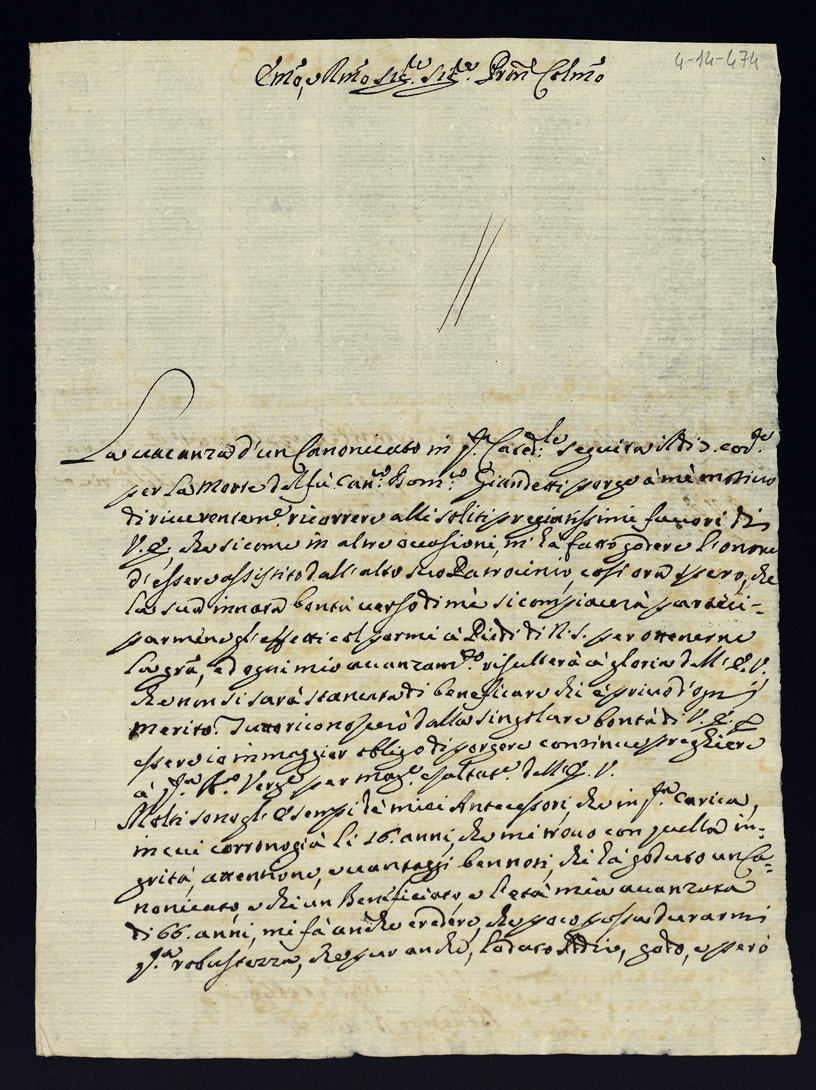 4-14-474
Emo, e Rmo Sig.re Sig.re Pron Colmo
La uacanza d'un Canonicato in q.ta Cated.le seguita il di 5. cod.te
per la Morte del fù Can.co Dom.co Giandetti porge à mè motiuo
di riuerentem.e ricorrere alli soliti pregiatissimi fauori di
V. E., che si come in altre occasioni, m'hà fatto godere l'onore
d'essere assistito dall'alto suo Patrocinio, cosi ora spero, che
la sua innata bontà uerso di mè si compiacerà parteci-
parmene gl'effetti col pormi à Piedi di N. S. per ottenerne
la gra, ed ogni mio auanzam.to risulterà à gloria dell'E. V.
che non si sarà stancata di beneficare chi è priuo d'ogni
merito. Tutto riconoscerò dalla singolare bontà di V. E. e
essere io in maggior obligo di porgere continue preghiere
à q.ta Verg.e per mag.e esaltat.e dell'E. V.
Molti sono gl'esempi de miei Antecessori, che in q.ta carica,
in cui corrono già li 16. anni, che mi trouo con quella in-
grità, attentione, e uantaggi ben noti, chi hà goduto un Ca-
nonicato e chi un Beneficiato, e l'età mia auanzata
di 66. anni, mi fà anche credere, che poco possa durarmi
q.ta robustezza, che pur anche, lodato Iddio, godo, e però